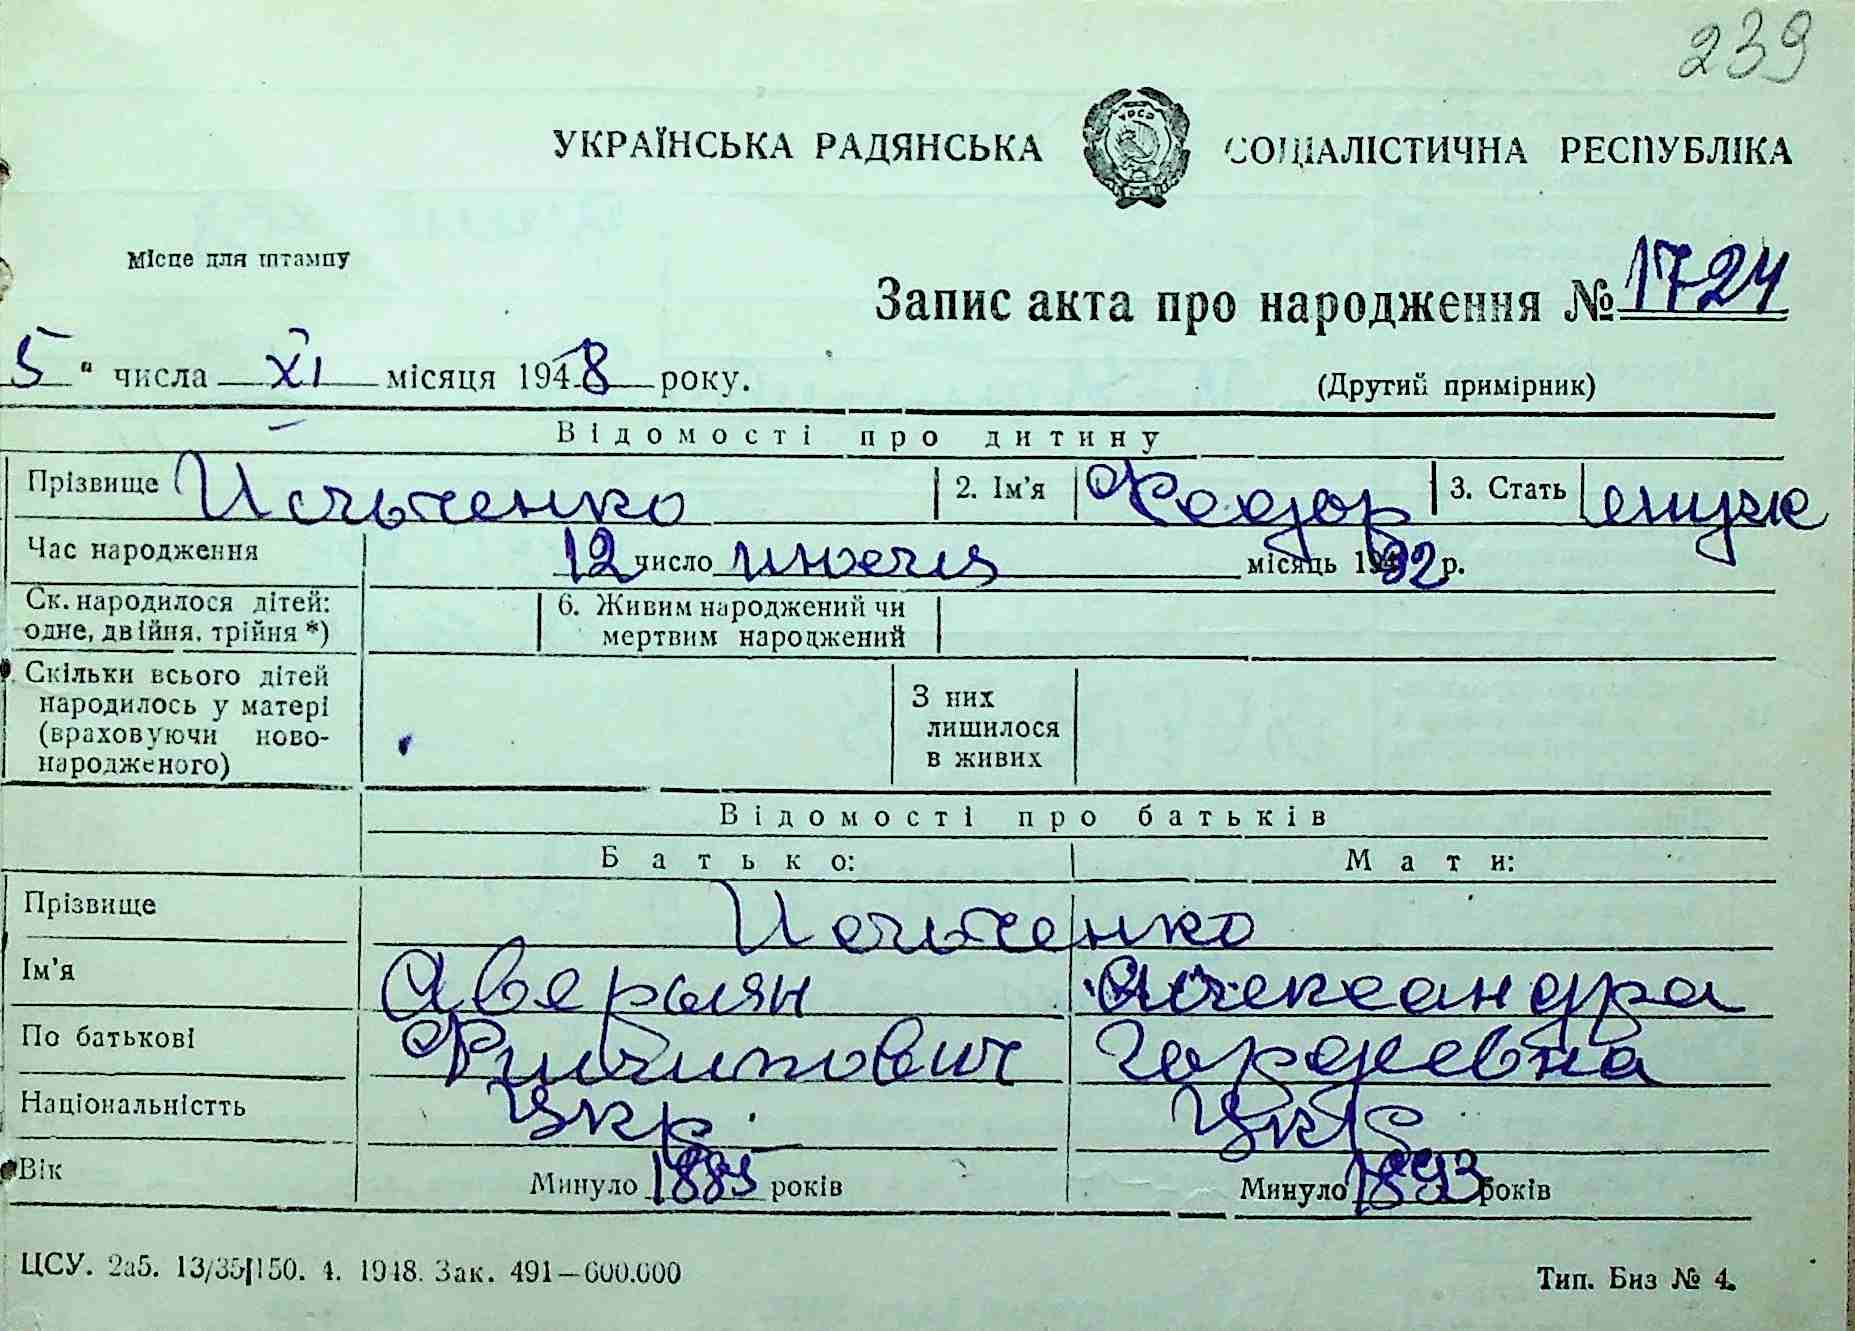 239
УКРАЇНСЬКА РАДЯНСЬКА СОЦІАЛІСТИЧНА РЕСПУБЛІКА
Місце для штампу
Запис акта про народження № 1724
5 " числа XI місяця 1948 року.
(Другий примірник)
Відомості про дитину
Прізвище Ильченко 2. Ім'я Федор 3. Стать муж
Час народження 12 число июля місяць 1932 р.
Ск. народилося дітей: одне, двійня, трійня *) 6. Живим народжений чи мертвим народжений
Скільки всього дітей народилось у матері (враховуючи ново-народженого) З них лишилося в живих
Відомості про батьків
Батько: Мати:
Прізвище Ильченко
Ім'я Аверьян Александра
По батькові Филипович Гордеевна
Національністть Укр. Укр
Вік Минуло 1883 років Минуло 1893 років
ЦСУ. 2а5. 13/35/150. 4. 1948. Зак. 491—600.000
Тип. Биз № 4.